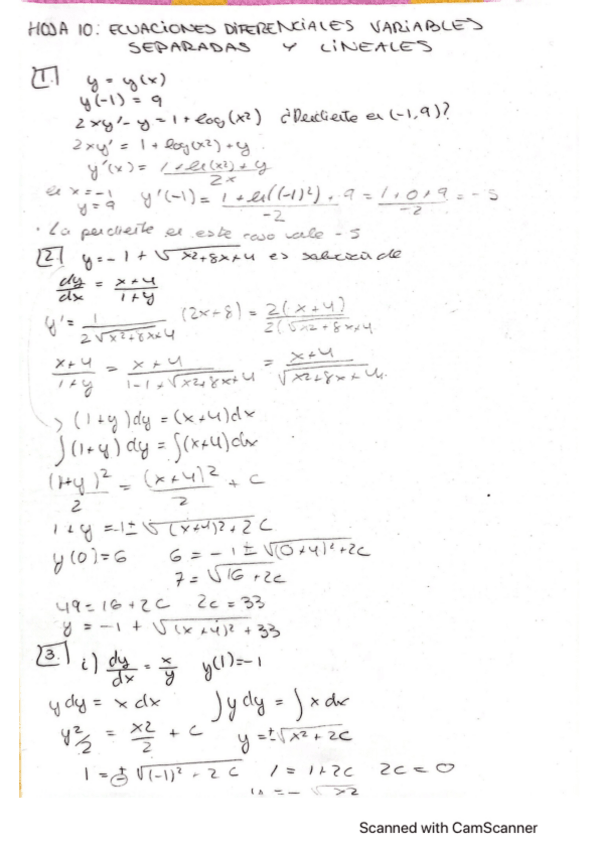 HOJA 10: ECUACIONES DIFERENCIALES VARIABLES
SEPARADAS Y LINEALES
1. y = y(x)
y(-1) = 9
2xy' - y = 1 + log(x2) ¿Pendiente en (-1,9)?
2xy' = 1 + log(x2) + y
y'(x) = (1 + ln(x2) + y)/2x
en x = -1
y = 9
y'(-1) = (1 + ln((-1)^2) + 9)/-2 = (1+0+9)/-2 = -5
· La pendiente en este caso vale -5
2. y = -1 + √(x2+8x+4) es solución de
dy/dx = (x+4)/(1+y)
y' = 1/(2√(x2+8x+4)) (2x+8) = 2(x+4)/(2(√(x2+8x+4
(x+4)/(1+y) = (x+4)/(1-1+√(x2+8x+4)) = (x+4)/√(x2+8x+4).
(1+y)dy = (x+4)dx
∫(1+y)dy = ∫(x+4)dx
(1+y)^2/2 = (x+4)^2/2 + C
1+y = -1 ± √((x+4)2+2C
y(0)=6 6 = -1 ± √((0+4)^2+2C
7 = √(16+2C
49 = 16+2C 2C = 33
y = -1 + √((x+4)2+33
3. i) dy/dx = x/y y(1)=-1
y dy = x dx ∫y dy = ∫x dx
y2/2 = x2/2 + C y = ±√(x2+2C
1 = ± √((-1)2 - 2C 1 = 1+2C 2C = 0
= - √x2
Scanned with CamScanner